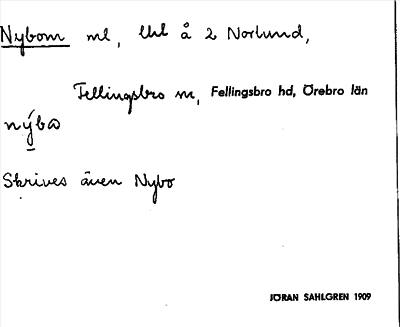 Nybom ml, lhl å 2 Norlund,
Fellingsbro sn, Fellingsbro hd, Örebro län
nýbɷ
Skrives även Nybo
JÖRAN SAHLGREN 1909